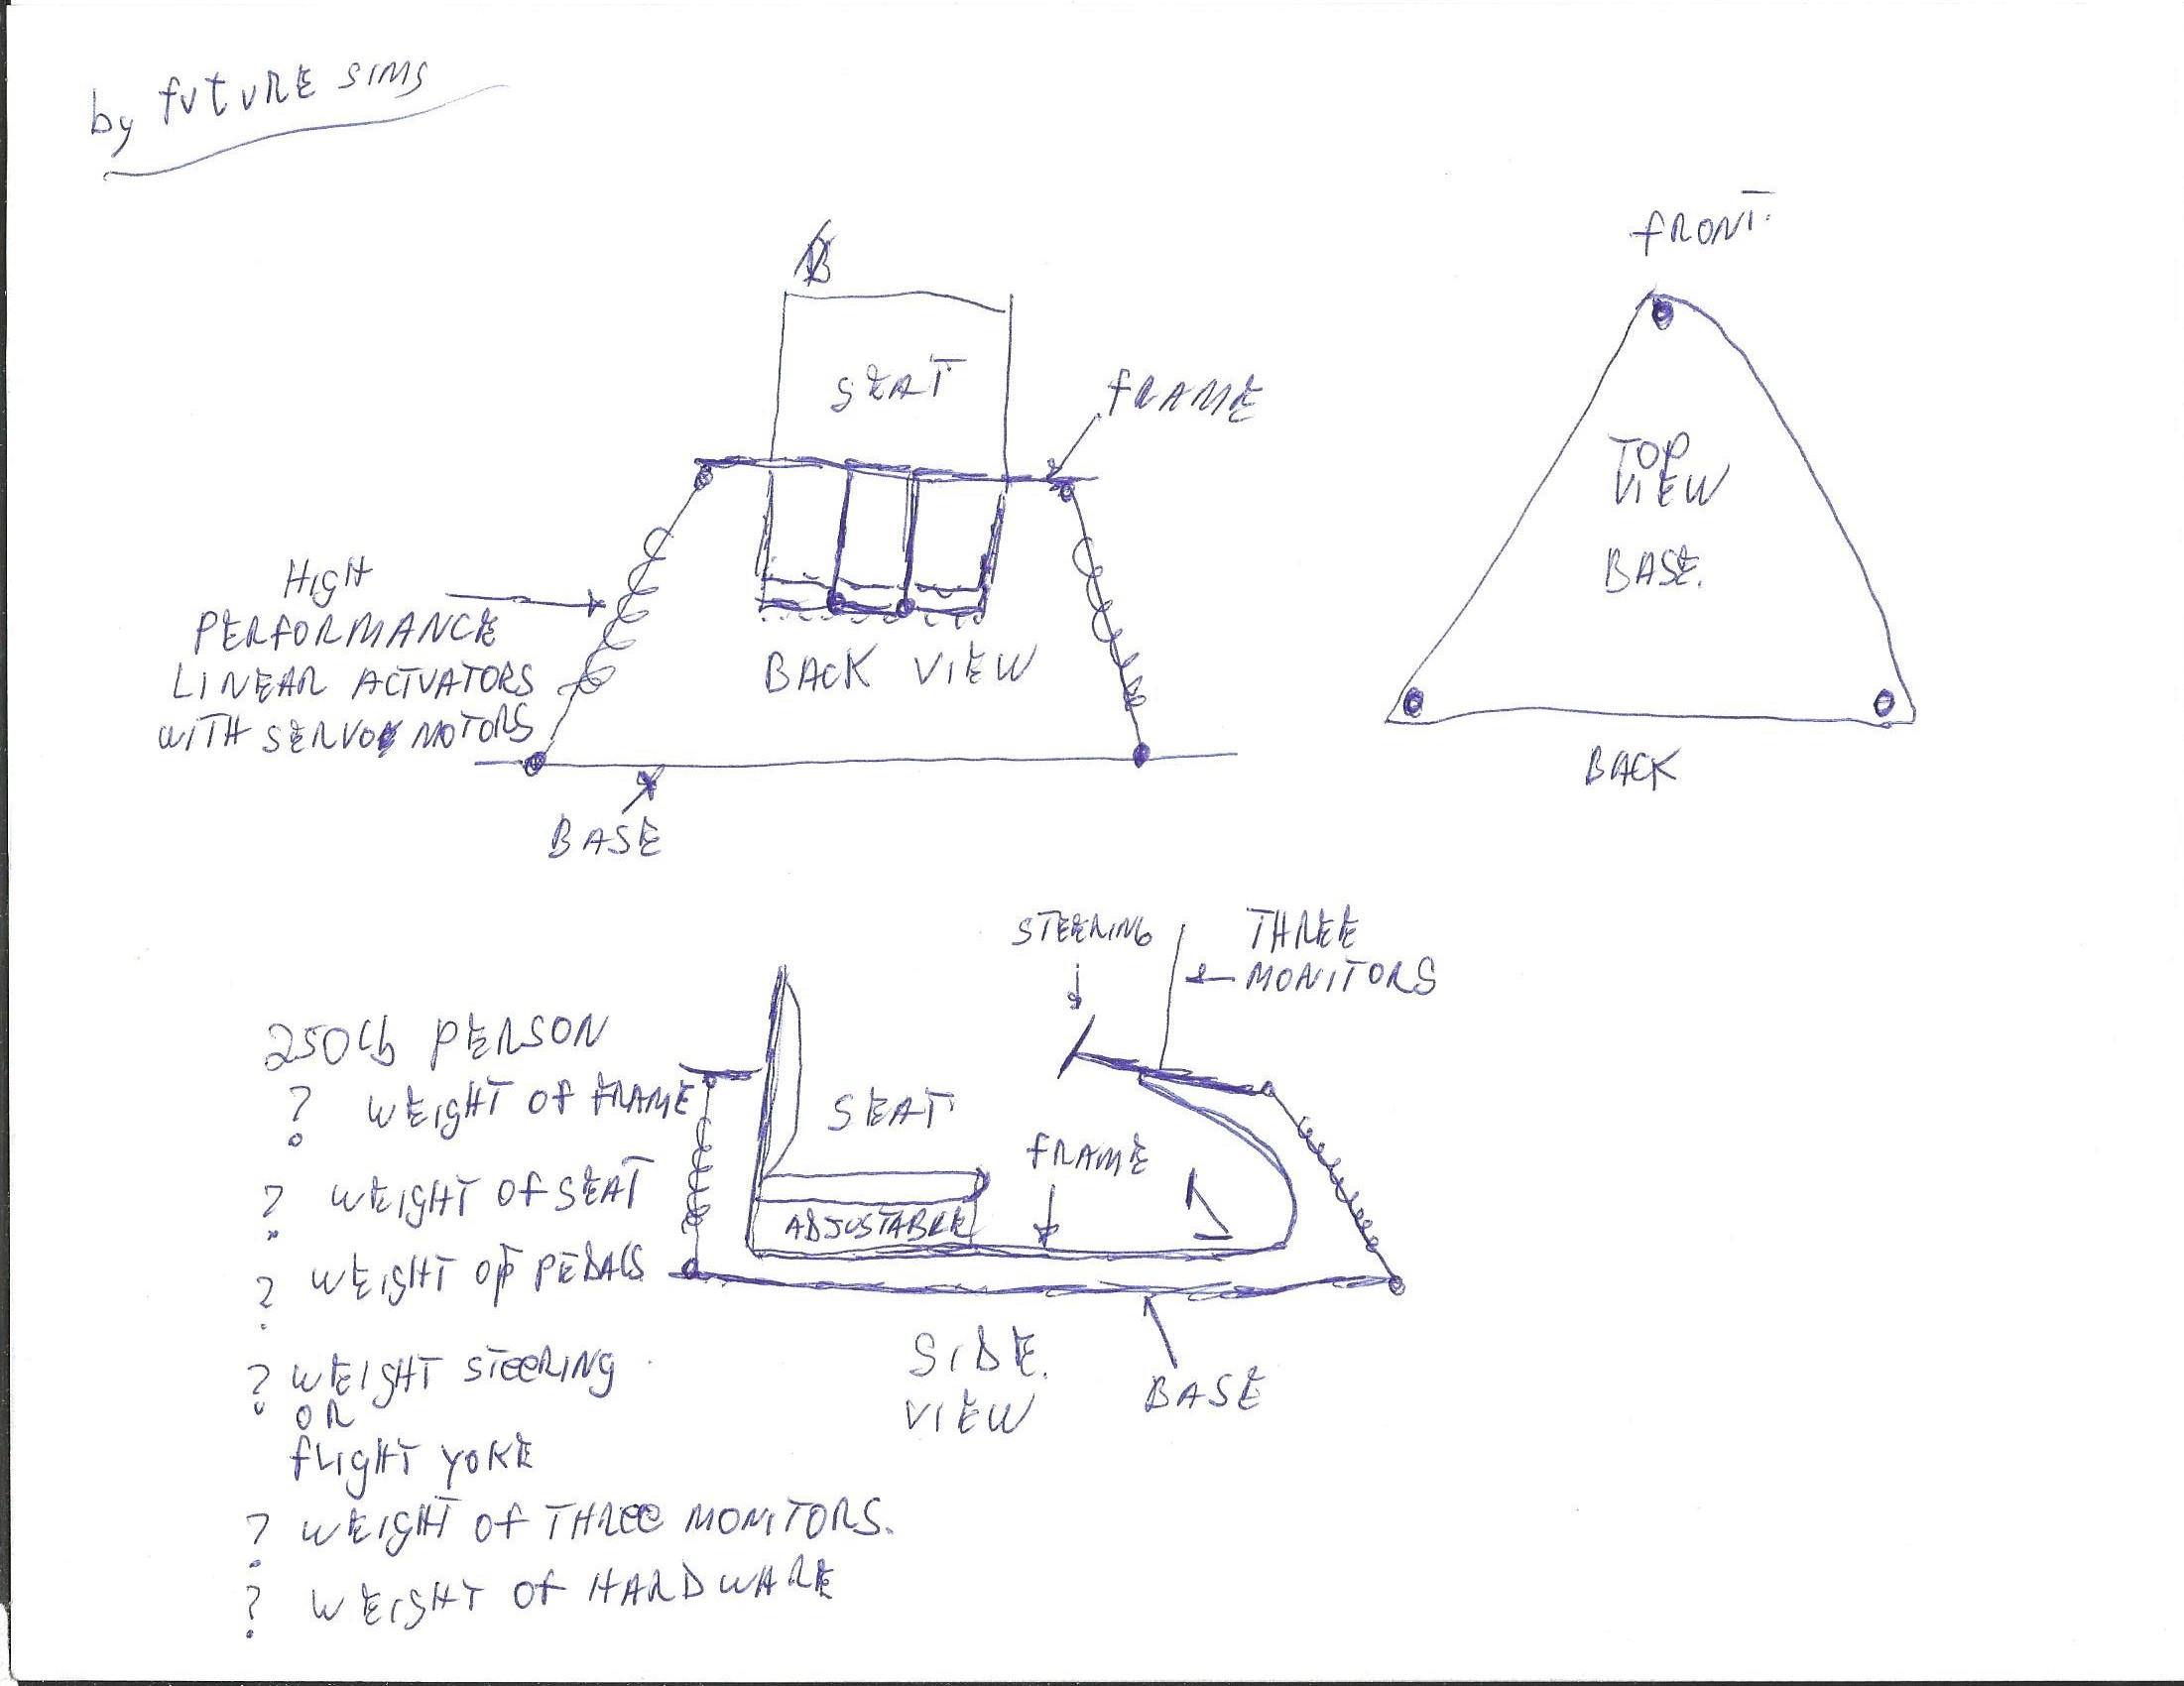 by future sims
FRONT.
SEAT
FRAME
TOP
VIEW
BASE.
HIGH
PERFORMANCE
LINEAR ACTUATORS
WITH SERVO MOTORS
BACK VIEW
BACK
BASE
STEERING
THREE
MONITORS
250lb PERSON
? WEIGHT OF FRAME
SEAT
FRAME
? WEIGHT OF SEAT
ADJUSTABLE
? WEIGHT OF PEDALS
SIDE.
VIEW
BASE
? WEIGHT STEERING
OR
FLIGHT YOKE
? WEIGHT OF THREE MONITORS.
? WEIGHT OF HARDWARE